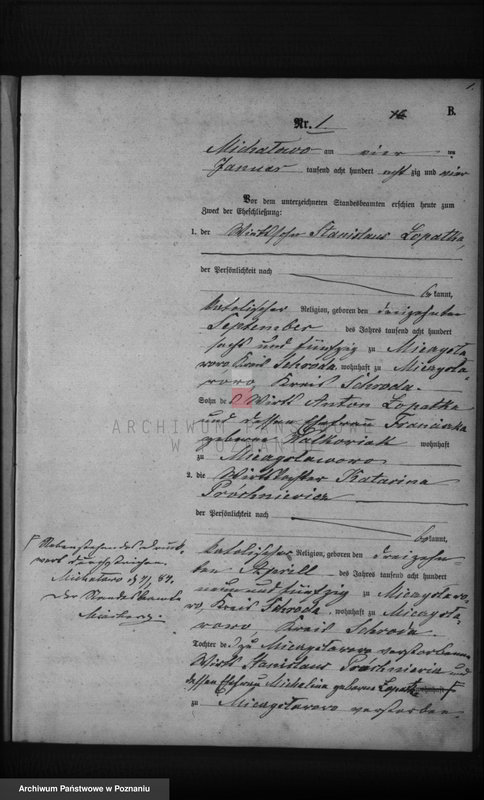 1.
B.
Nr. 1.
Michalowo am vier ten
Januar tausend acht hundert acht zig und vier
Vor dem unterzeichneten Standesbeamten erschien heute zum
Zweck der Eheschließung:
1. der Wirthssohn Stanislaus Lopatka,
der Persönlichkeit nach
bekannt,
katolischer Religion, geboren den dreizehnten
September des Jahres tausend acht hundert
sechs und fünfzig zu Micagola
wo Kreis Schroda, wohnhaft zu Micagola
wo, Kreis Schroda.
Sohn des Wirths Anton Lopatka
und dessen Ehefrau Franciszka
geborene Walkowiak wohnhaft
zu
2. die Wirthstochter Katarina
Próchniewicz
der Persönlichkeit nach
bekannt,
katolischer Religion, geboren den dreizehn-
ten April des Jahres tausend acht hundert
neun und fünfzig zu
Kreis Schroda, wohnhaft zu
Kreis Schroda.
Tochter des zu verstorbenen
Wirth Stanislaus und
dessen Ehefrau Michelina geborene Lopatka wohnhaft
zu verstorben.
Nebenstehendes Druck-
wort durchstrichen.
Michalowo d 4/1 84.
Der Standesbeamte
ARCHIWUM PAŃSTWOWE
W POZNANIU
Archiwum Państwowe w Poznaniu
Archiwum Państwowe w Poznaniu